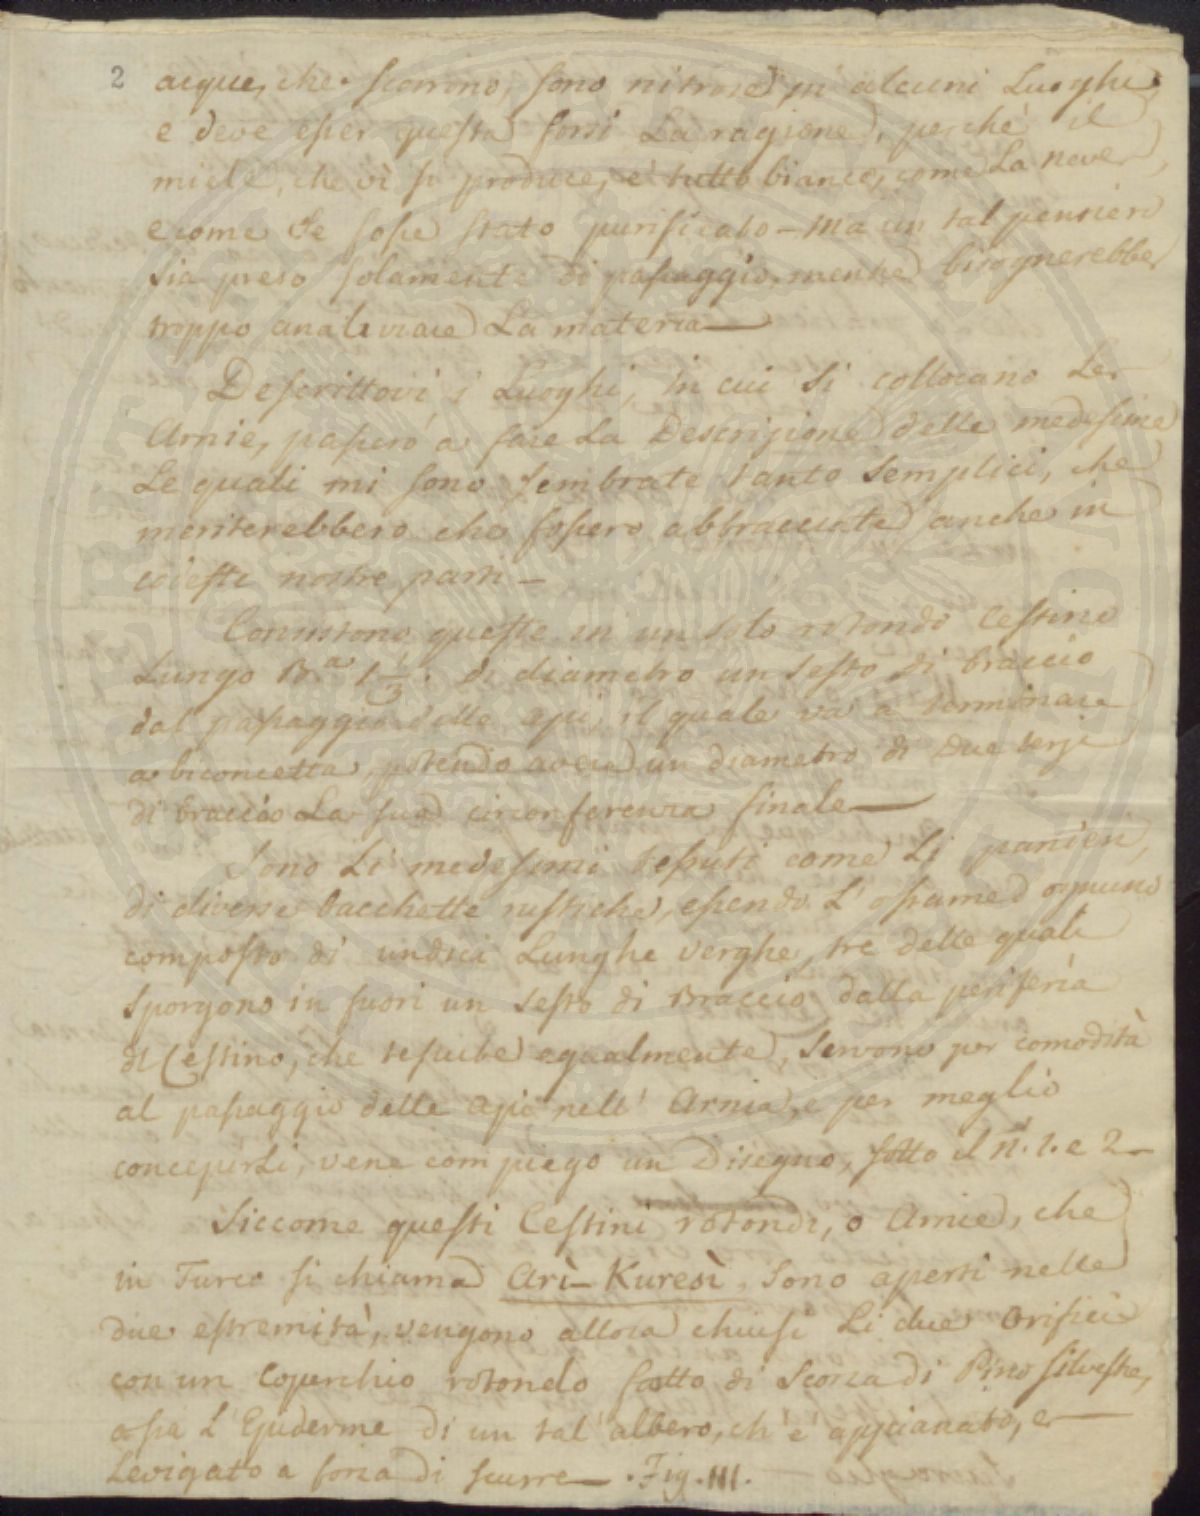 2 acque, che scorrono, sono nitrose in alcuni Luoghi,
e deve esser questa forsi La ragione, perchè il
miele, che vì si produce, è tutto bianco, come La neve,
e come se fosse stato purificato - Ma un tal pensiero
sia preso solamente di passaggio, mentre bisognerebbe
troppo analizzare La materia —
Descrittovi i Luoghi, in cui si collocano Le
Arnie, passerò a fare La Descrizione delle medesime
Le quali mi sono sembrate tanto semplici, che
meriterebbero che fossero abbracciate anche in
coteste nostre parti -
Consistono queste in un solo rotondo Cestino
Lungo Br.a 1 1/3. di diametro un sesto di braccio
dal passaggio delle api, il quale va a terminare
a biconcetta, potendo avere un diametro di due terzi
di braccio La sua circonferenza finale —
Sono Li medesimi tessuti come Li panieri,
di diverse bacchette rustiche, essendo L'ossame d'ognuno
composto di undici Lunghe verghe, tre delle quali
sporgono in fuori un sesto di Braccio dalla periferia
di Cestino, che tessute egualmente, servono per comodità
al passaggio delle api nell' Arnia, e per meglio
concepirsi, vene compiego un Disegno, sotto il N. 1. e 2 —
Siccome questi Cestini rotondi, o Arnie, che
in Turco si chiama Arì-Kuresì, sono aperti nelle
due estremità, vengono allora chiusi Li due orifici
con un Coperchio rotondo fatto di Scorza di Pino silvestre,
ossia L'Epiderme di un tal' albero, ch' è appianato, e —
Levigato a forza di scurre —. Fig. III.